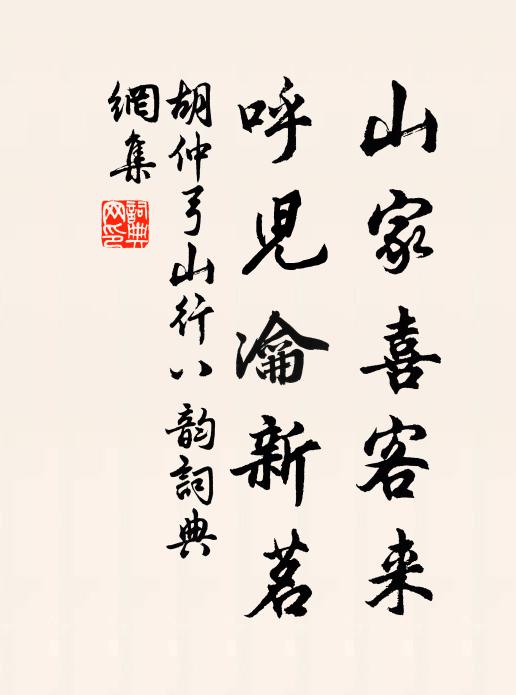 山家喜客来
呼児瀹新茗
胡仲弓山行八韵詞典
網集
詞典网印